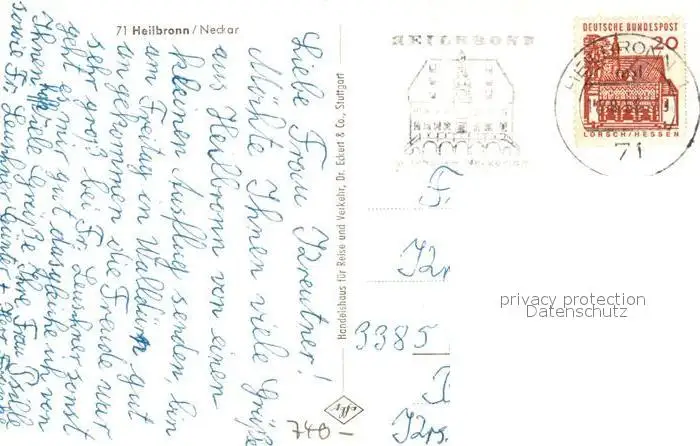 71 Heilbronn / Neckar
Liebe Frau Kreutner!
Möchte Ihnen viele Grüße
aus Heilbronn von einen
kleinen Ausflug senden, bin
am Freitag in Walldürn gut
angekommen die Freude war
sehr groß bei Fr. sonst
geht es mir gut dasgleiche ich von
Ihnen viele Grüße Ihre Frau
sowie Fr.
Handelshaus für Reise und Verkehr, Dr. Eckert & Co., Stuttgart
HEILBRONN
DEUTSCHE BUNDESPOST
20
LORSCH/HESSEN
HEILBRONN
71
F
Kr
3385
Krs.
740-
privacy protection
Datenschutz